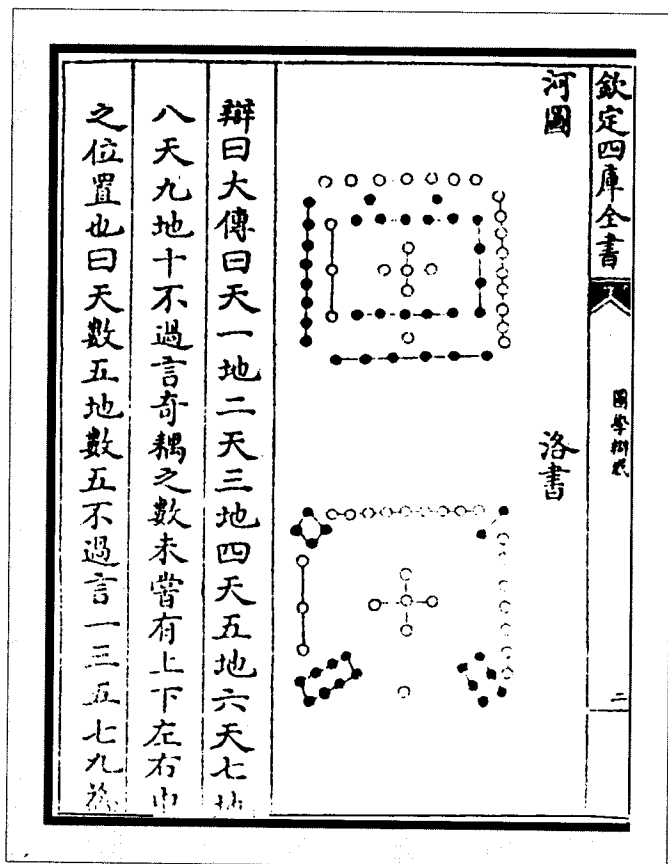 欽定四庫全書
二
河圖
洛書
辯曰大傳曰天一地二天三地四天五地六天七地
八天九地十不過言奇耦之數未嘗有上下左右中
之位置也曰天數五地數五不過言一三五七九為